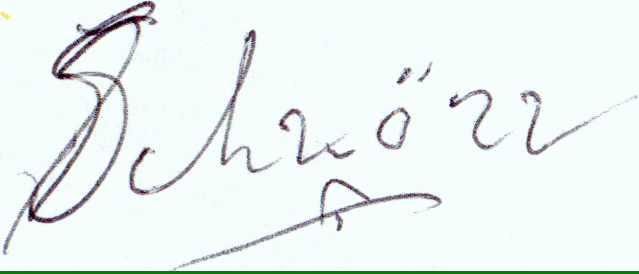 Schrörr